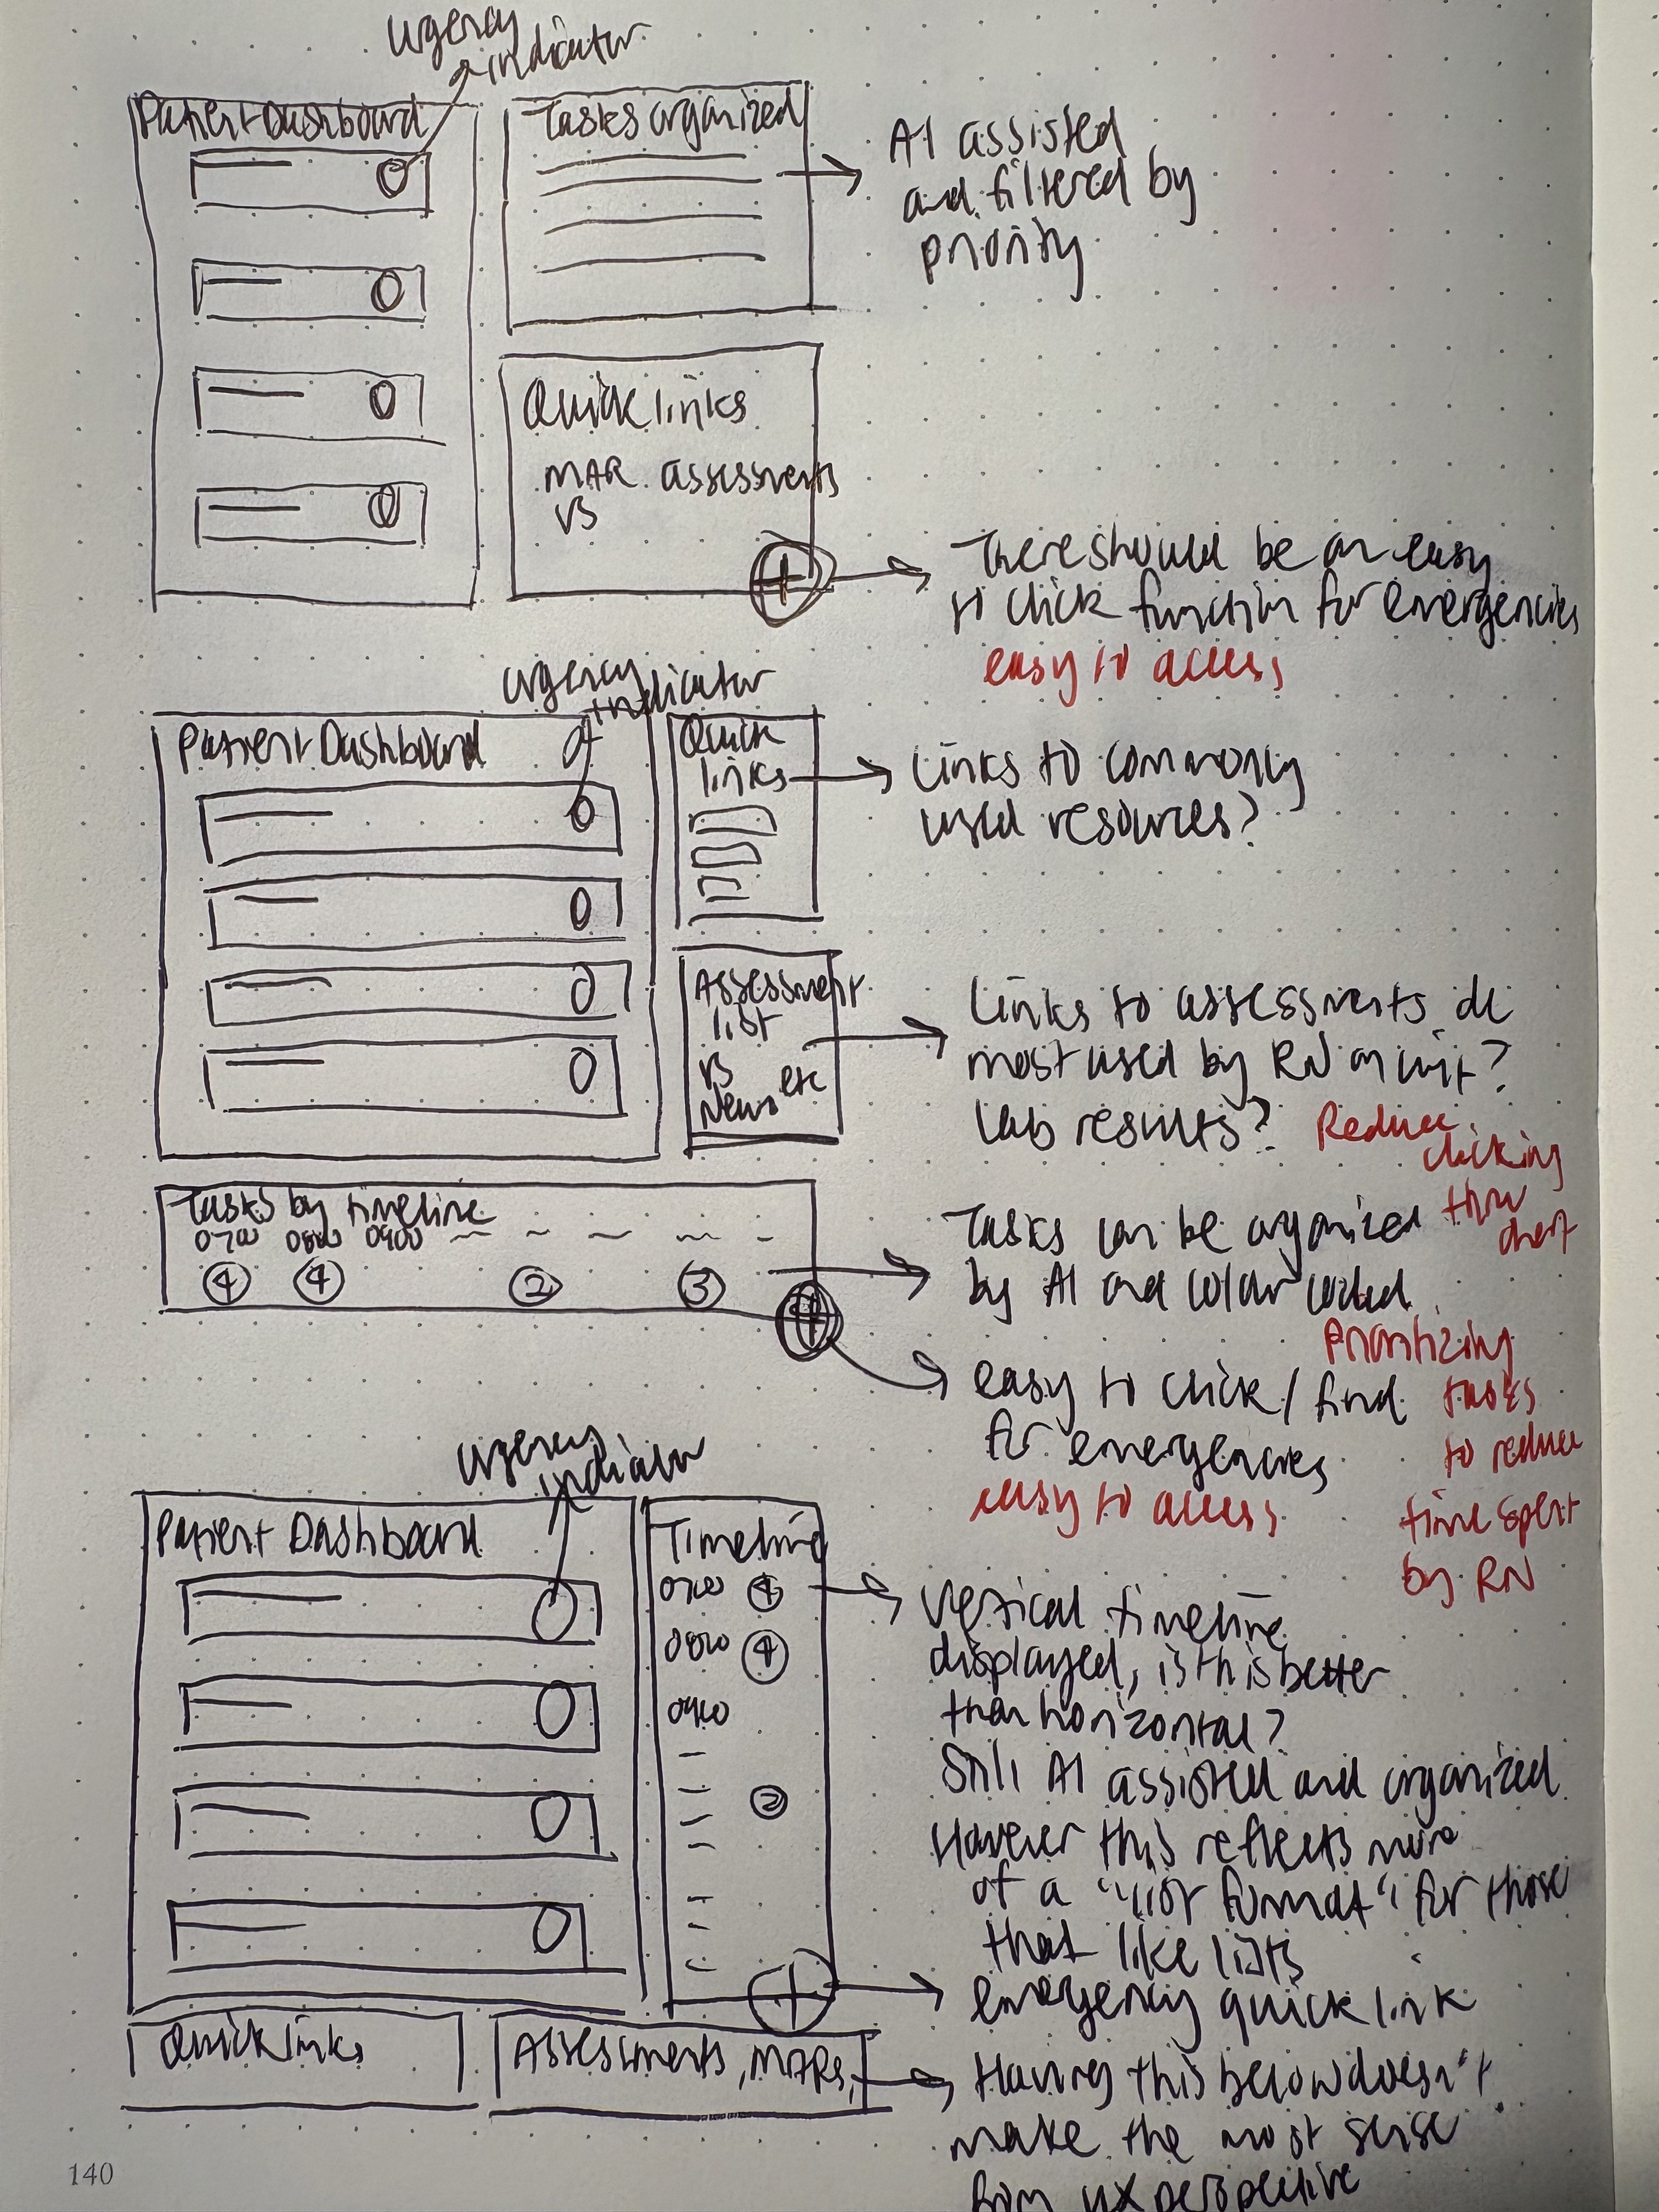 urgency
indicator
Patient Dashboard
Tasks organized
AI assisted
and filtered by
priority
Quick links
MAR assessments
VS
There should be an easy
to click function for emergencies
easy to access
urgency
indicator
Patient Dashboard
Quick
links
Links to commonly
used resources?
Assessment
list
VS
News etc
Links to assessments
most used by RN on unit?
Lab results?
Reduce
clicking
thru
chart
Tasks by timeline
0700 0800 0900
4 4 2 3
Tasks can be organized
by AI and colour coded
Prioritizing
tasks
to reduce
time spent
by RN
easy to click / find
for emergencies
easy to access
urgency
indicator
Patient Dashboard
Timeline
0700 4
0800 4
0900
2
Vertical timeline
displayed, is this better
than horizontal?
Still AI assisted and organized
However this reflects more
of a "list format" for those
that like lists
emergency quick link
Quick links
Assessments, MARs,
Having this below doesn't
make the most sense
from UX perspective
140